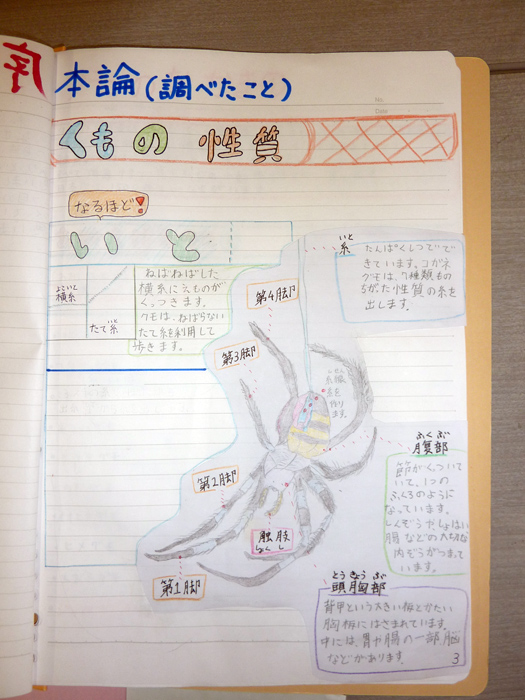 序
本論(調べたこと)
No.
Date
くもの 性質
なるほど!
いと
よこいと
横糸
たて糸
いと
ねばねばした
横糸にえものが
くっつきます。
クモは、ねばらない
たて糸を利用して
歩きます。
いと
糸
たんぱくしつでで
きています。コガネ
グモは、7種類もの
ちがった性質の糸を
出します。
第4脚
第3脚
第2脚
第1脚
糸を
作り
ます。
触肢
しょくし
ふくぶ
腹部
節がくっついて
いて、1つの
ふくろのように
なっています。
腸などの大切な
内ぞうがつまって
います。
とうきょうぶ
頭胸部
背甲という大きい板とかたい
胸板にはさまれています。
中には、胃や腸の一部、脳
などがあります。
3